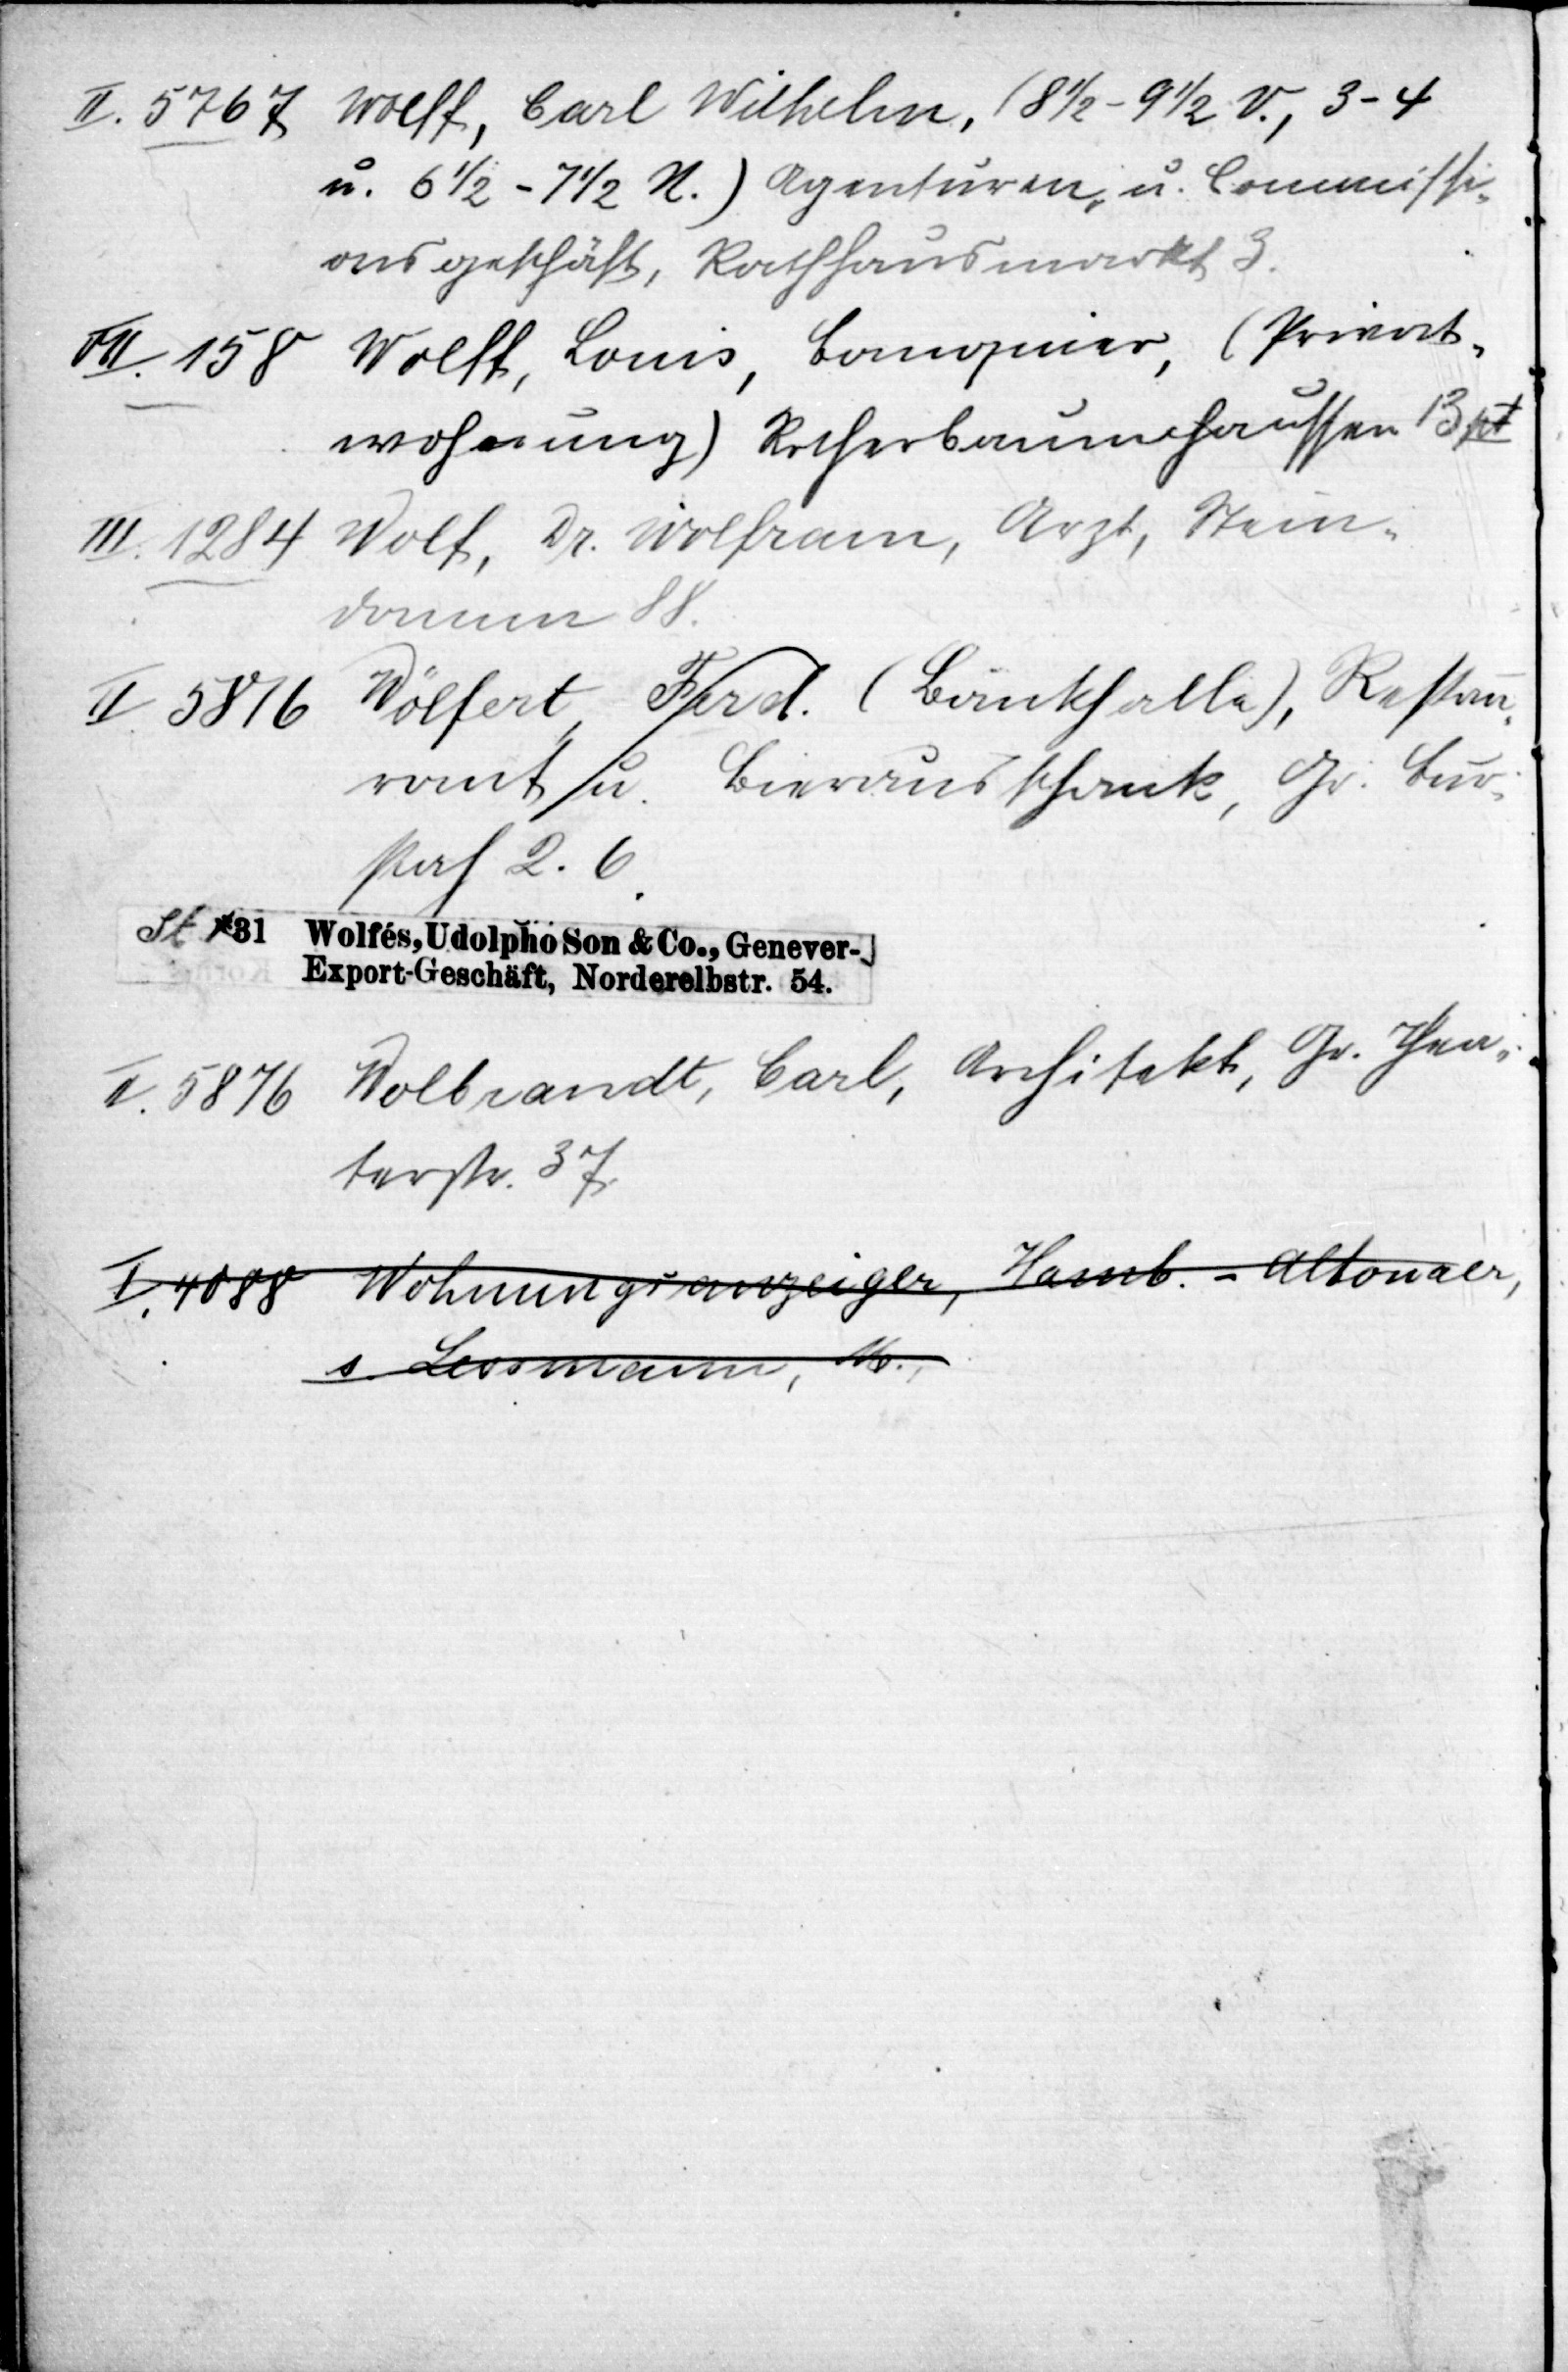 II. 5767 Wolff, Carl Wilhelm, (8 1/2 - 9 1/2 V., 3-4
u. 6 1/2 - 7 1/2 N.) Agenturen- u. Commissi-
onsgeschäft, Rathhausmarkt 3.
VII. 158 Wolff, Louis, Banquier, (Privat-
wohnung) Rotherbaumchaussee 13 pt
III. 1284 Wolf, Dr. Wolfram, Arzt, Stein-
damm 88.
II 5816 Wölfert, Ferd. (Bankhalle), Restau-
rant u. Bierausschank, Gr. Bur-
stah 2. 6.
St *31 Wolfés, Udolpho Son & Co., Genever-
Export-Geschäft, Norderelbstr. 54.
II. 5876 Wolbrandt, Carl, Architekt, Gr. Thea-
terstr. 37.
I. 4088 Wohnungsanzeiger, Hamb.-Altonaer,
s. Lessmann, M.,